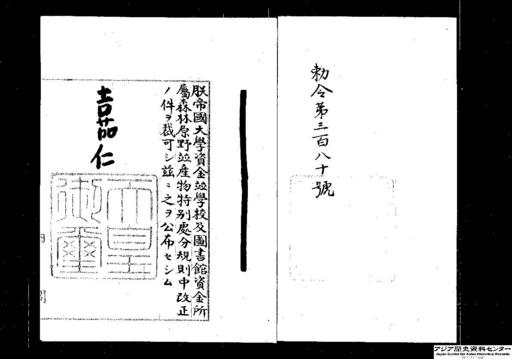 勅令第三百八十號
朕帝國大學資金竝學校及圖書館資金所
屬森林原野竝産物特別處分規則中改正
ノ件ヲ裁可シ茲ニ之ヲ公布セシム
嘉仁
天皇御璽
アジア歴史資料センター
Japan Center for Asian Historical Records